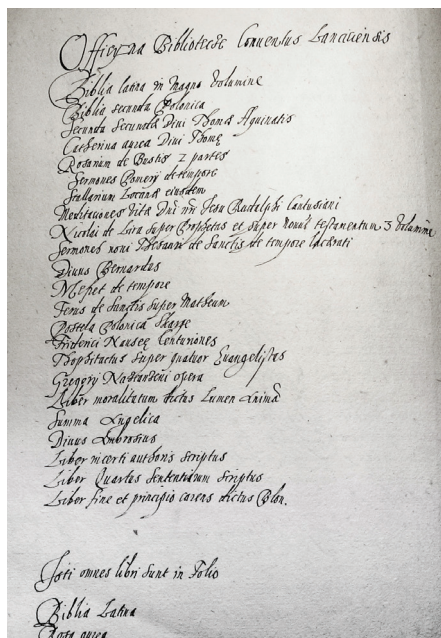 Officyna Bibliotecæ Conuentus Lanciciensis
Biblia latina in magno Volumine
Biblia secunda Polonica
Secunda Secundæ Diui Thomæ Aquinatis
Cathena aurea Diui Thomę
Rosarium de Bustis 2 partes
Sermones Pomerij de tempore
Stellarium Coronæ eiusdem
Meditationes Vitæ Dni nri Jesu Radulphi Cartusiani
Nicolai de Lira super Prophetas et super nouū testamentum 3 Volumina
Sermones noui Thesauri de Sanctis de tempore
Diuus Bernardus
Mefret de tempore
Ferus de Sanctis super Matheum
Postela Polonica Skarge
Friderici Nauseę Centuriones
Thophilactus super quatuor Euangelistas
Gregorij Nazianzeni opera
Liber moralitatum dictus Lumen Animæ
Summa Angelica
Diuus Ambrosius
Liber incerti authoris scriptus
Liber Quartus Sententiarum scriptus
Liber fine et principio carens dictus
Isti omnes libri sunt in Folio
Biblia Latina
Rosa aurea